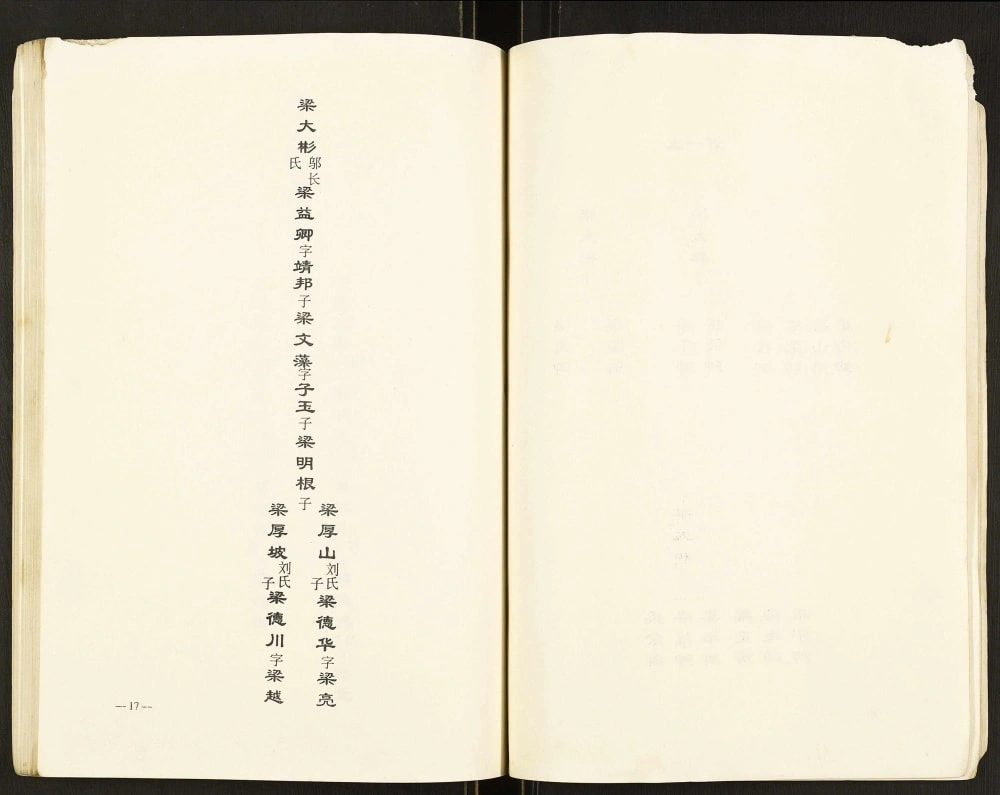 梁大彬
邬氏
长
梁益卿字靖邦
子
梁文藻字子玉
子
梁明根
子
梁厚山
刘氏
子
梁德华字梁亮
梁厚坡
刘氏
子
梁德川字梁越
—17—